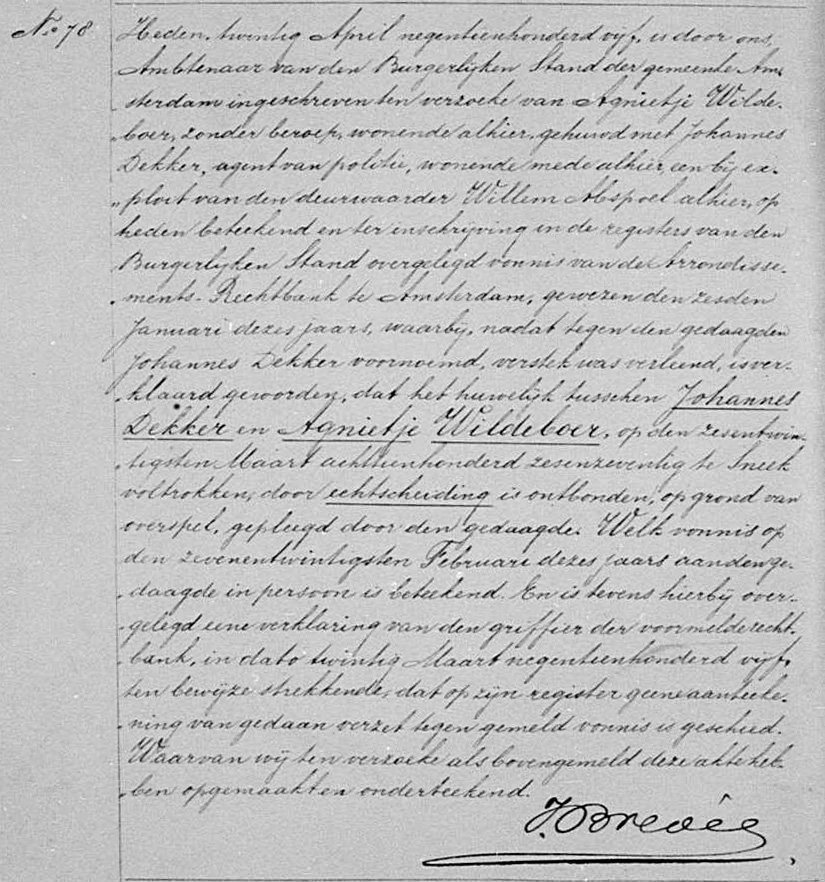 No 78
Heden, twintig April negentienhonderd vijf, is door ons,
Ambtenaar van den Burgerlijken Stand der gemeente Am-
sterdam ingeschreven ten verzoeke van Agnietje Wilde-
boer, zonder beroep, wonende alhier, gehuwd met Johannes
Dekker, agent van politie, wonende mede alhier, een bij ex-
ploit van den deurwaarder Willem Abspoel alhier, op
heden beteekend en ter inschrijving in de registers van den
Burgerlijken Stand overgelegd vonnis van de Arrondisse-
ments-Rechtbank te Amsterdam, gewezen den zesden
Januari dezes jaars, waarbij, nadat tegen den gedaagden
Johannes Dekker voornoemd, verstek was verleend, is ver-
klaard geworden, dat het huwelijk tusschen Johannes
Dekker en Agnietje Wildeboer, op den zesentwin-
tigsten Maart achttienhonderd zesenzeventig te Sneek
voltrokken, door echtscheiding is ontbonden, op grond van
overspel, gepleegd door den gedaagde. Welk vonnis op
den zevenentwintigsten Februari dezes jaars aan den ge-
daagde in persoon is beteekend. En is tevens hierbij over-
gelegd eene verklaring van den griffier der voormelde recht-
bank, in dato twintig Maart negentienhonderd vijf,
ten bewijze strekkende, dat op zijn register geene aanteeke-
ning van gedaan verzet tegen gemeld vonnis is geschied.
Waarvan wij ten verzoeke als bovengemeld deze akte heb-
ben opgemaakt en onderteekend.
J. Brevée